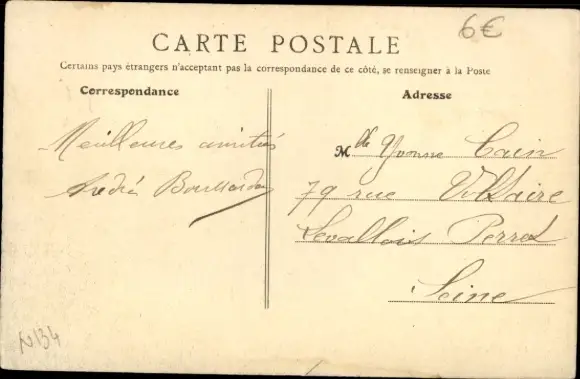 6€
CARTE POSTALE
Certains pays étrangers n'acceptant pas la correspondance de ce côté, se renseigner à la Poste
Correspondance
Meilleures amitiés
Andrée
Adresse
Mlle Yvonne Cain
79 rue Voltaire
Levallois Perret
Seine
N134